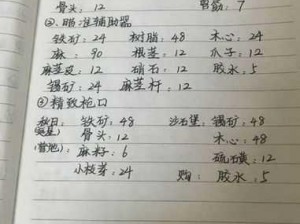 骨头，12 弓筋，7
②. 瞄准辅助器
铁矿：24 树脂：48 木心：24
麻：90 根茎：12 爪子：12
麻茎皮：12 硝石：12 胶水：5
锡矿：24 麻茎杆：12
③ 精致枪口
秋日：铁矿：48 沙石堡：锡矿：48
骨头：12 木心：48
(营地)：麻籽：6 硫磺：12
小枝芽：24 购：胶水：5